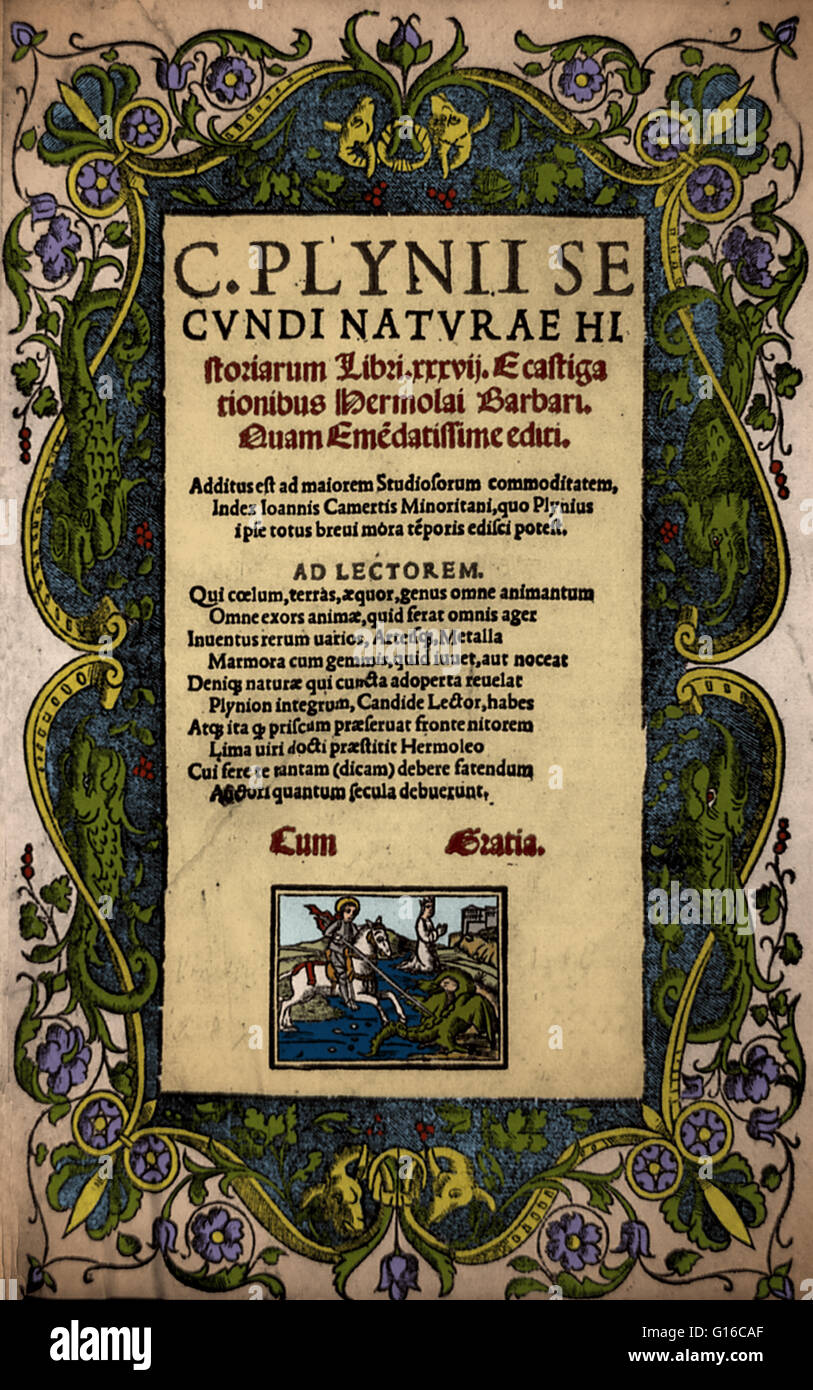 C. PLYNII SE
CVNDI NATVRAE HI
storiarum Libri.xxxvij. E castiga
tionibus Hermolai Barbari.
Quam Emēdatissime editi.
Additus est ad maiorem Studiosorum commoditatem,
Index Ioannis Camertis Minoritani, quo Plynius
ipse totus breui mora tēporis edisci potest.
AD LECTOREM.
Qui cœlum, terras, æquor, genus omne animantum
Omne exors animæ, quid ferat omnis ager
Inuentus rerum uarios, Artesq;, Metalla
Marmora cum gemmis, quid iuuet, aut noceat
Deniq; naturæ qui cuncta adoperta reuelat
Plynion integrum, Candide Lector, habes
Atq; ita ꝙ priscum præseruat fronte nitorem
Lima uiri docti præstitit Hermoleo
Cui fere te tantam (dicam) debere fatendum
quantum secula debuerunt.
Cum Gratia.
alamy
alamy
Image ID: G16CAF
www.alamy.com